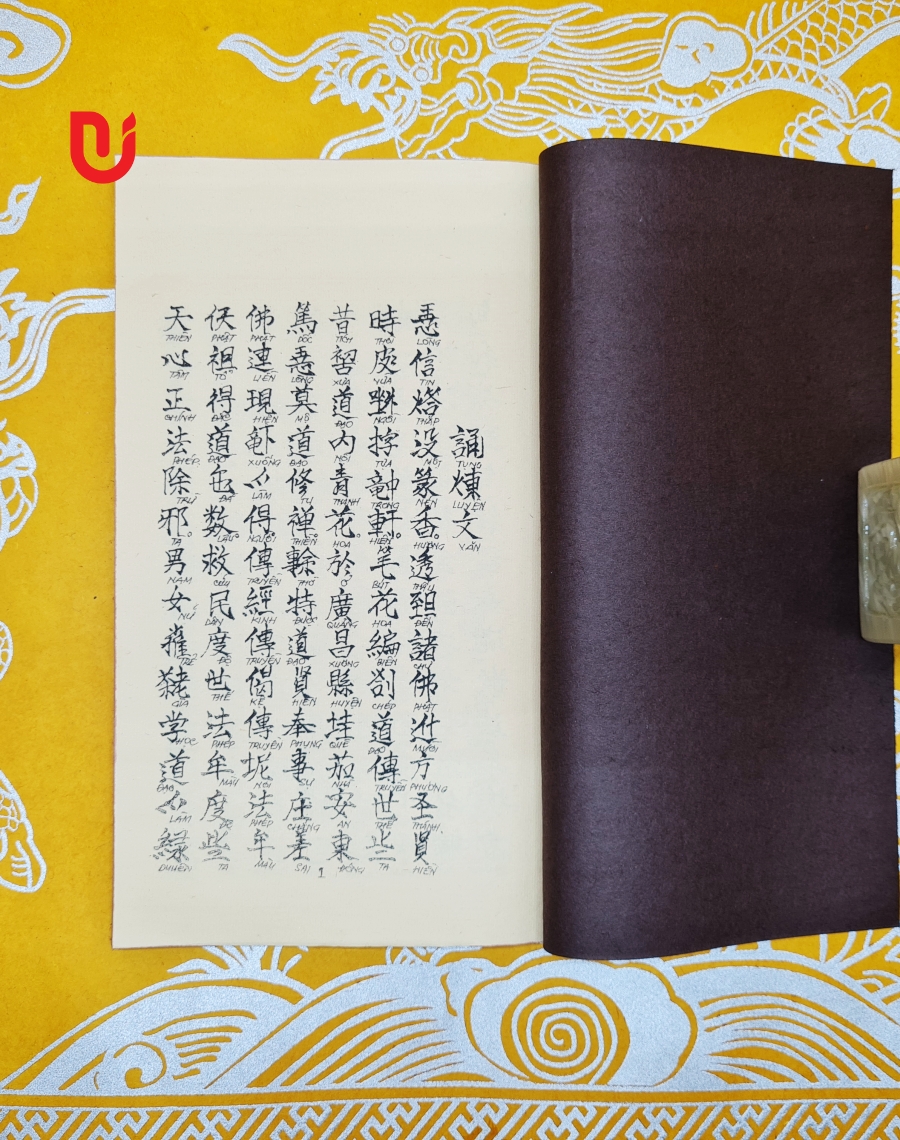 誦煉文
TỤNG LUYỆN VĂN
信没篆香。透諸佛方圣賢
LÒNG TIN THẮP MỘT NÉN HƯƠNG THẤU ĐẾN CHƯ PHẬT MƯỜI PHƯƠNG THÁNH HIỀN
時皮軒。笔花編劄道傳世些
THỜI VỪA NGỒI TỰA TRONG HIÊN BÚT HOA BIÊN CHÉP ĐẠO TRUYỀN THẾ TA
昔道内青花於廣昌縣茹安東
TÍCH XƯA ĐẠO NỘI THANH HOA Ở QUẢNG XƯƠNG HUYỆN QUÊ NHÀ AN ĐÔNG
篤慕道修禅。特道賢奉事庄差
DỐC LÒNG MỘ ĐẠO TU THIỀN THỜ ĐƯỢC ĐẠO HIỀN PHỤNG SỰ CHẲNG SAI
佛連現得傳經傳偈傳坭法牟
PHẬT LIỀN HIỆN XUỐNG LÀM NGƯỜI TRUYỀN KINH TRUYỀN KỆ TRUYỀN NƠI PHÉP MẦU
祖得道㐌数。救民度世法牟度些
PHẬT TỔ ĐẮC ĐẠO ĐÃ LÂU CỨU DÂN ĐỘ THẾ PHÉP MẦU ĐỘ TA
天心正法除邪。男女学道緣
THIÊN TÂM CHÍNH PHÉP TRỪ TÀ NAM NỮ TRẺ GIÀ HỌC ĐẠO LÀM DUYÊN
1